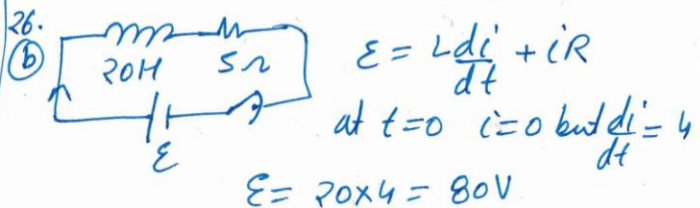 26.
(b)
20H 5Ω
ε
ε = L di/dt + iR
at t=0 i=0 but di/dt = 4
ε = 20×4 = 80V